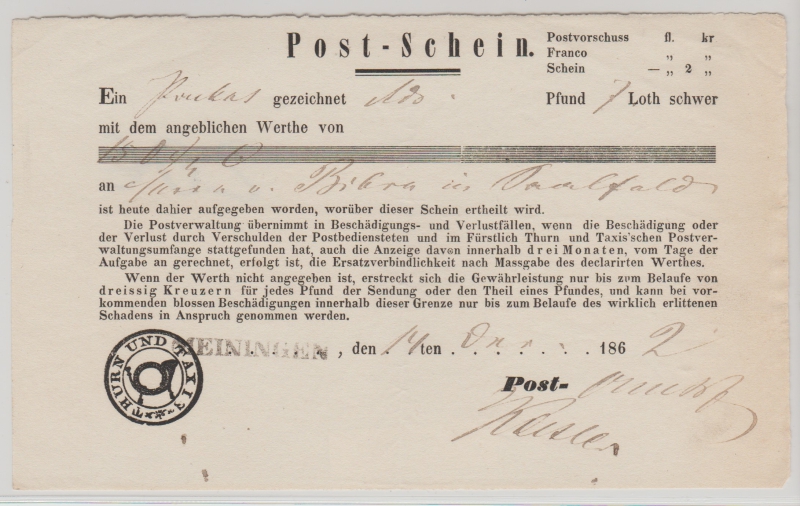 Post-Schein.
Postvorschuss fl. kr
Franco „ „
Schein — „ 2 „
Ein gezeichnet Pfund 7 Loth schwer
mit dem angeblichen Werthe von
an v. Bibra in Saalfeld
ist heute dahier aufgegeben worden, worüber dieser Schein ertheilt wird.
Die Postverwaltung übernimmt in Beschädigungs- und Verlustfällen, wenn die Beschädigung oder
der Verlust durch Verschulden der Postbediensteten und im Fürstlich Thurn und Taxis'schen Postver-
waltungsumfange stattgefunden hat, auch die Anzeige davon innerhalb drei Monaten, vom Tage der
Aufgabe an gerechnet, erfolgt ist, die Ersatzverbindlichkeit nach Massgabe des declarirten Werthes.
Wenn der Werth nicht angegeben ist, erstreckt sich die Gewährleistung nur bis zum Belaufe von
dreissig Kreuzern für jedes Pfund der Sendung oder den Theil eines Pfundes, und kann bei vor-
kommenden blossen Beschädigungen innerhalb dieser Grenze nur bis zum Belaufe des wirklich erlittenen
Schadens in Anspruch genommen werden.
MEININGEN, den 14ten 1862
THURN UND TAXIS
Post-